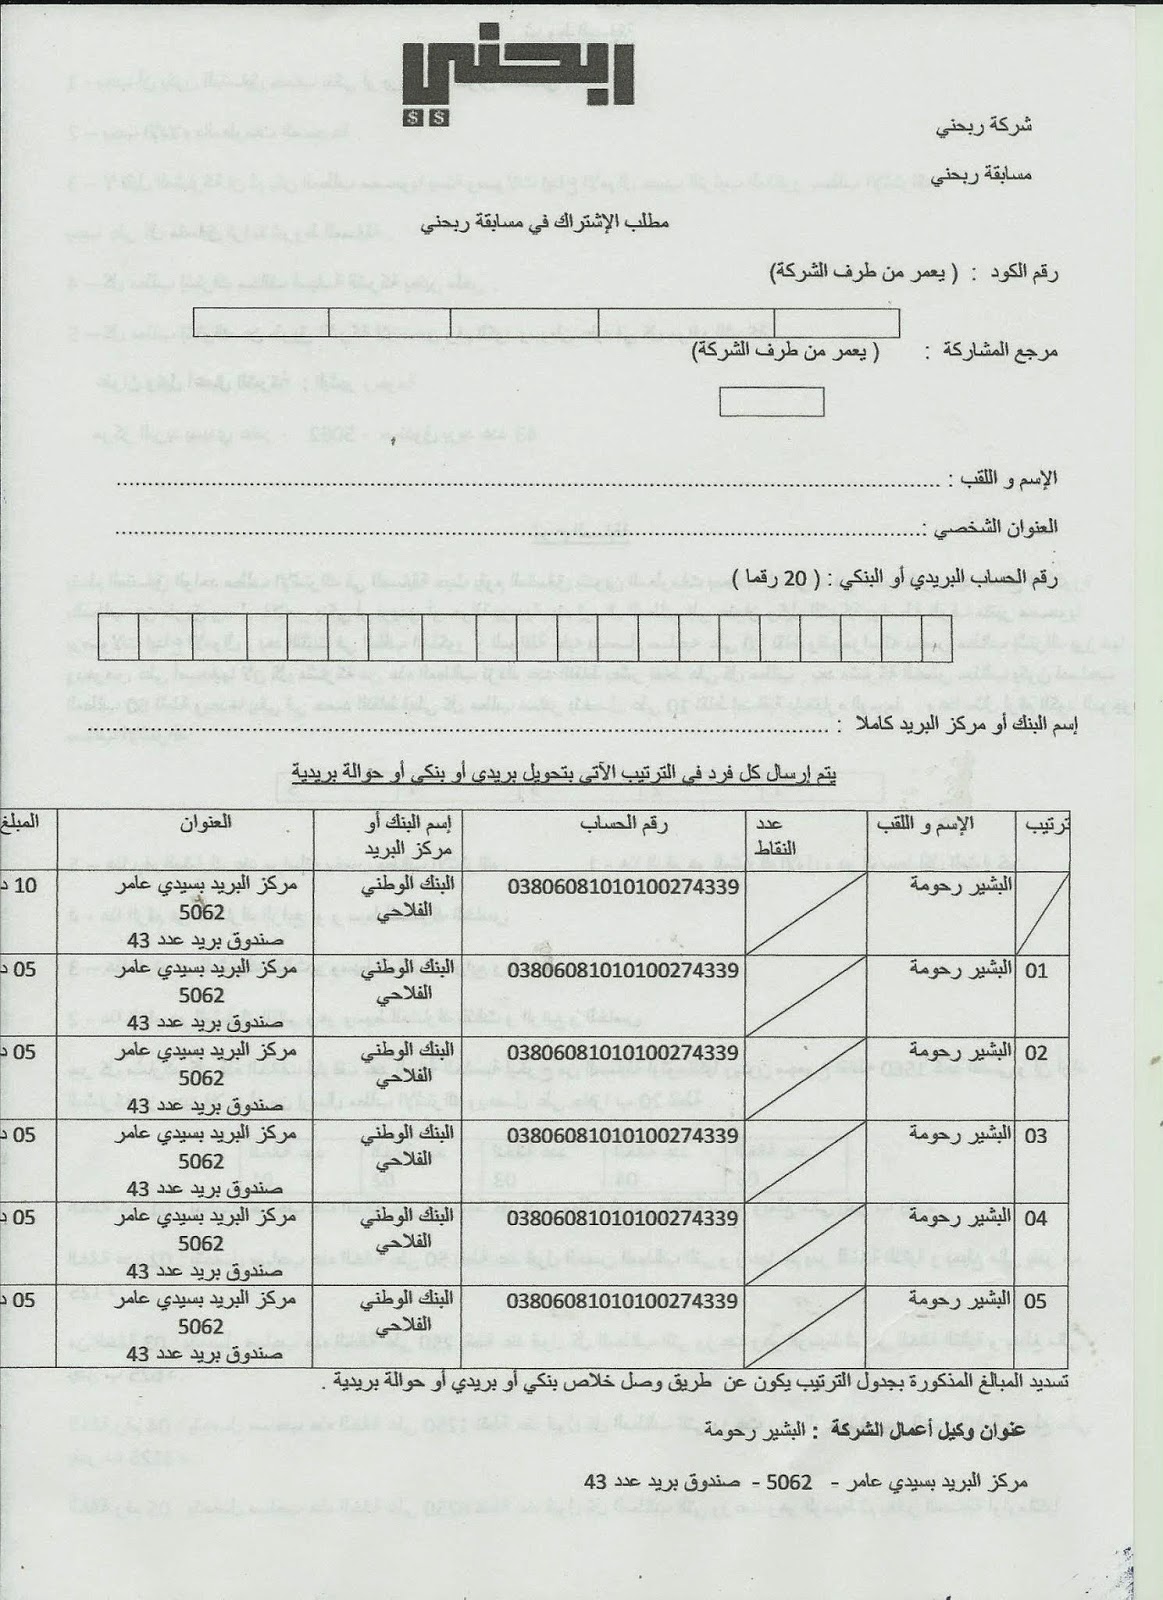 ربحني
$ $
شركة ربحني
مسابقة ربحني
مطلب الإشتراك في مسابقة ربحني
رقم الكود : ( يعمر من طرف الشركة)
مرجع المشاركة : ( يعمر من طرف الشركة)
الإسم و اللقب : ........................................
العنوان الشخصي :........................................
رقم الحساب البريدي أو البنكي : ( 20 رقما )
إسم البنك أو مركز البريد كاملا : ........................................
يتم إرسال كل فرد في الترتيب الآتي بتحويل بريدي أو بنكي أو حوالة بريدية
ترتيب الإسم و اللقب عدد النقاط رقم الحساب إسم البنك أو مركز البريد العنوان المبلغ
البشير رحومة 03806081010100274339 البنك الوطني الفلاحي مركز البريد بسيدي عامر 5062 صندوق بريد عدد 43 10 د
01 البشير رحومة 03806081010100274339 البنك الوطني الفلاحي مركز البريد بسيدي عامر 5062 صندوق بريد عدد 43 05 د
02 البشير رحومة 03806081010100274339 البنك الوطني الفلاحي مركز البريد بسيدي عامر 5062 صندوق بريد عدد 43 05 د
03 البشير رحومة 03806081010100274339 البنك الوطني الفلاحي مركز البريد بسيدي عامر 5062 صندوق بريد عدد 43 05 د
04 البشير رحومة 03806081010100274339 البنك الوطني الفلاحي مركز البريد بسيدي عامر 5062 صندوق بريد عدد 43 05 د
05 البشير رحومة 03806081010100274339 البنك الوطني الفلاحي مركز البريد بسيدي عامر 5062 صندوق بريد عدد 43 05 د
تسديد المبالغ المذكورة بجدول الترتيب يكون عن طريق وصل خلاص بنكي أو بريدي أو حوالة بريدية .
عنوان وكيل أعمال الشركة : البشير رحومة
مركز البريد بسيدي عامر - 5062 - صندوق بريد عدد 43